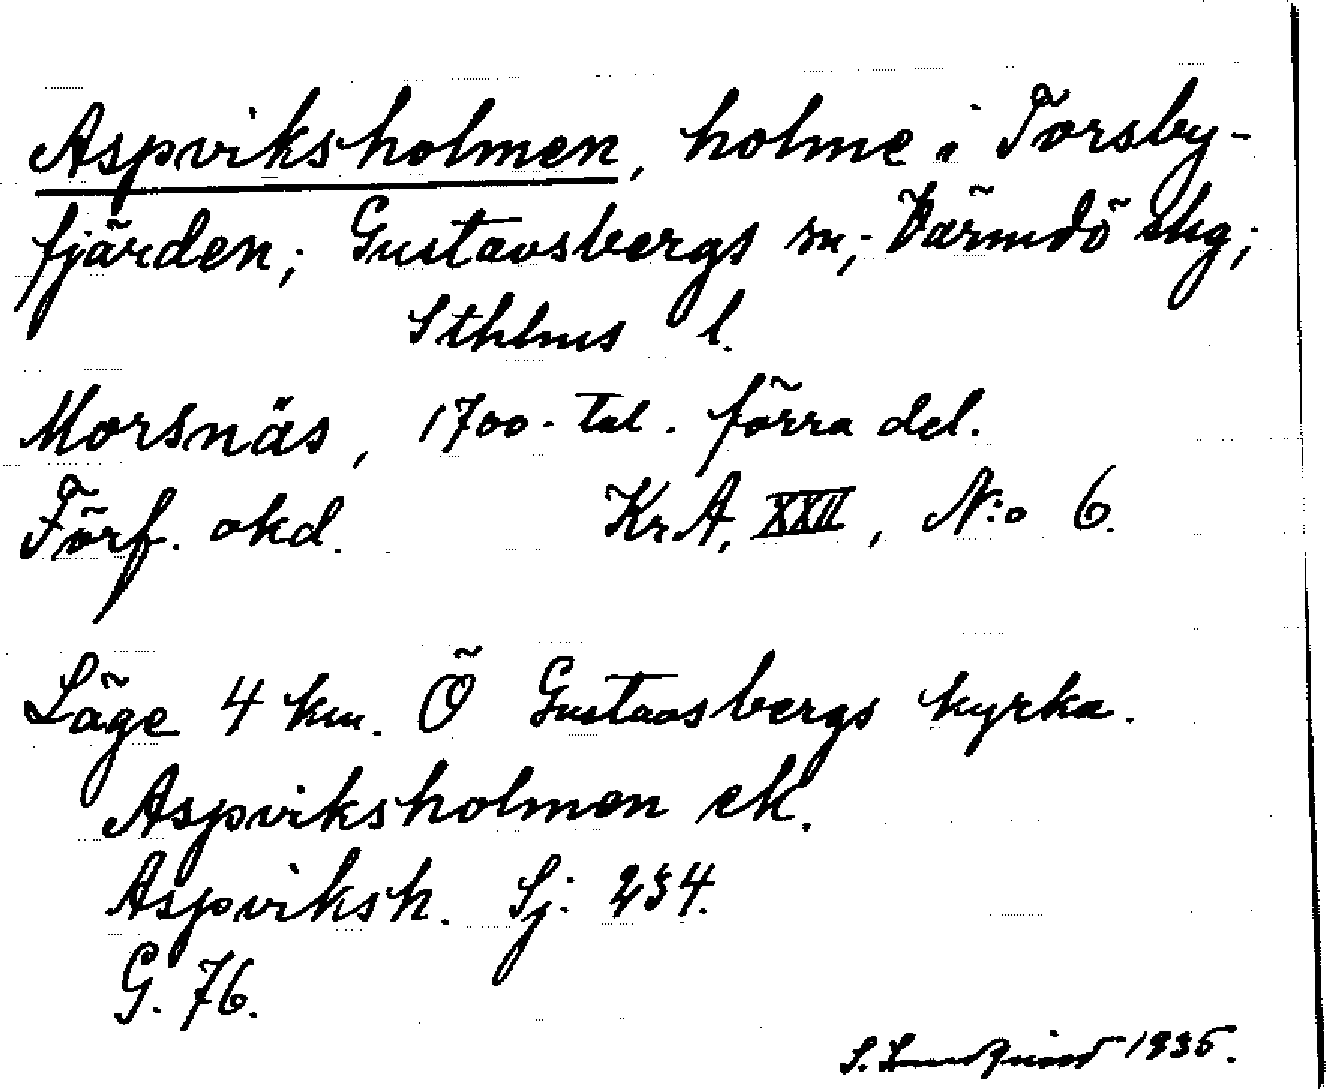 Aspviksholmen, holme i Torsby-
fjärden; Gustavsbergs sn; Värmdö skg;
Sthlms l.
Morsnäs, 1700-tal. förra del.
Förf. okd. Kr.A. XXII, N:o 6.
Läge 4 km. Ö Gustavsbergs kyrka.
Aspviksholmen ek.
Aspviksh. Sj. 234.
G. 76.
S. Lundqvist 1935.